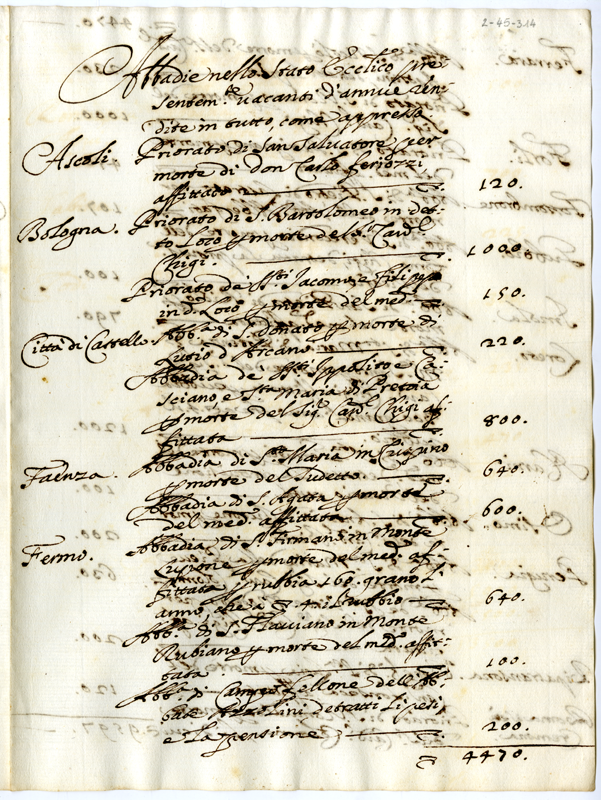 2-45-314
Abbadie nello Stato Eccl.ico pre=
sentem.te vacanti d'annue ren=
dite in tutto, come appresso
Ascoli. Priorato di San Salvatore per
morte di Don Carlo Feriozzi,
affittato 120.
Bologna. Priorato di S. Bartolomeo in det=
to Loco p morte del S. Card.l
Chigi. 1000.
Priorato de S.ti Iacomo, e Filippo
in d.o Loco p morte del med.o 150.
Città di Castello. Abb.a di S. Donato p morte di
d'Arcano 220.
Abbadia de' S.ti Ippolito e Ca=
sciano, e S.ta Maria di
p morte del Sig. Card. Chigi af=
fittata 800.
Faenza. Abbadia di S.ta Maria in Crispino
p morte del Sudetto 640.
Abbadia di S. Agata p morte
del med.o affittata 600.
Fermo. Abbadia di S. Firmano in Monte
p morte del med.o af=
fittata p rubbia 160. grano l'
anno, che a 4. il rubbio 640.
Abb.a di S. Flaviano in Monte
Rubiano p morte del med.o affit=
tata 100.
Abb.a di dell'Ab=
bate Azzolini detratti li pesi,
e la pensione 200.
4470.